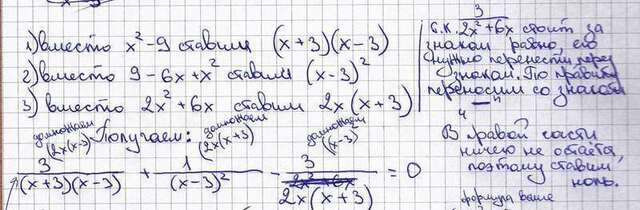 1) вместо x²-9 ставим (x+3)(x-3)
2) вместо 9-6x+x² ставим (x-3)²
3) вместо 2x²+6x ставим 2x(x+3)
Получаем:
домножаем (2x(x-3)
домножаем (2x(x+3)
домножаем (x-3)²
3/((x+3)(x-3)) + 1/(x-3)² - 3/(2x(x+3)) = 0
т.к. 3/(2x²+6x) стоит за
знаком равно, его
нужно перенести перед
знаком. По правилу
переносим со знаком
"-"
В правой части
ничего не остаётся,
поэтому ставим
ноль.
формула выше